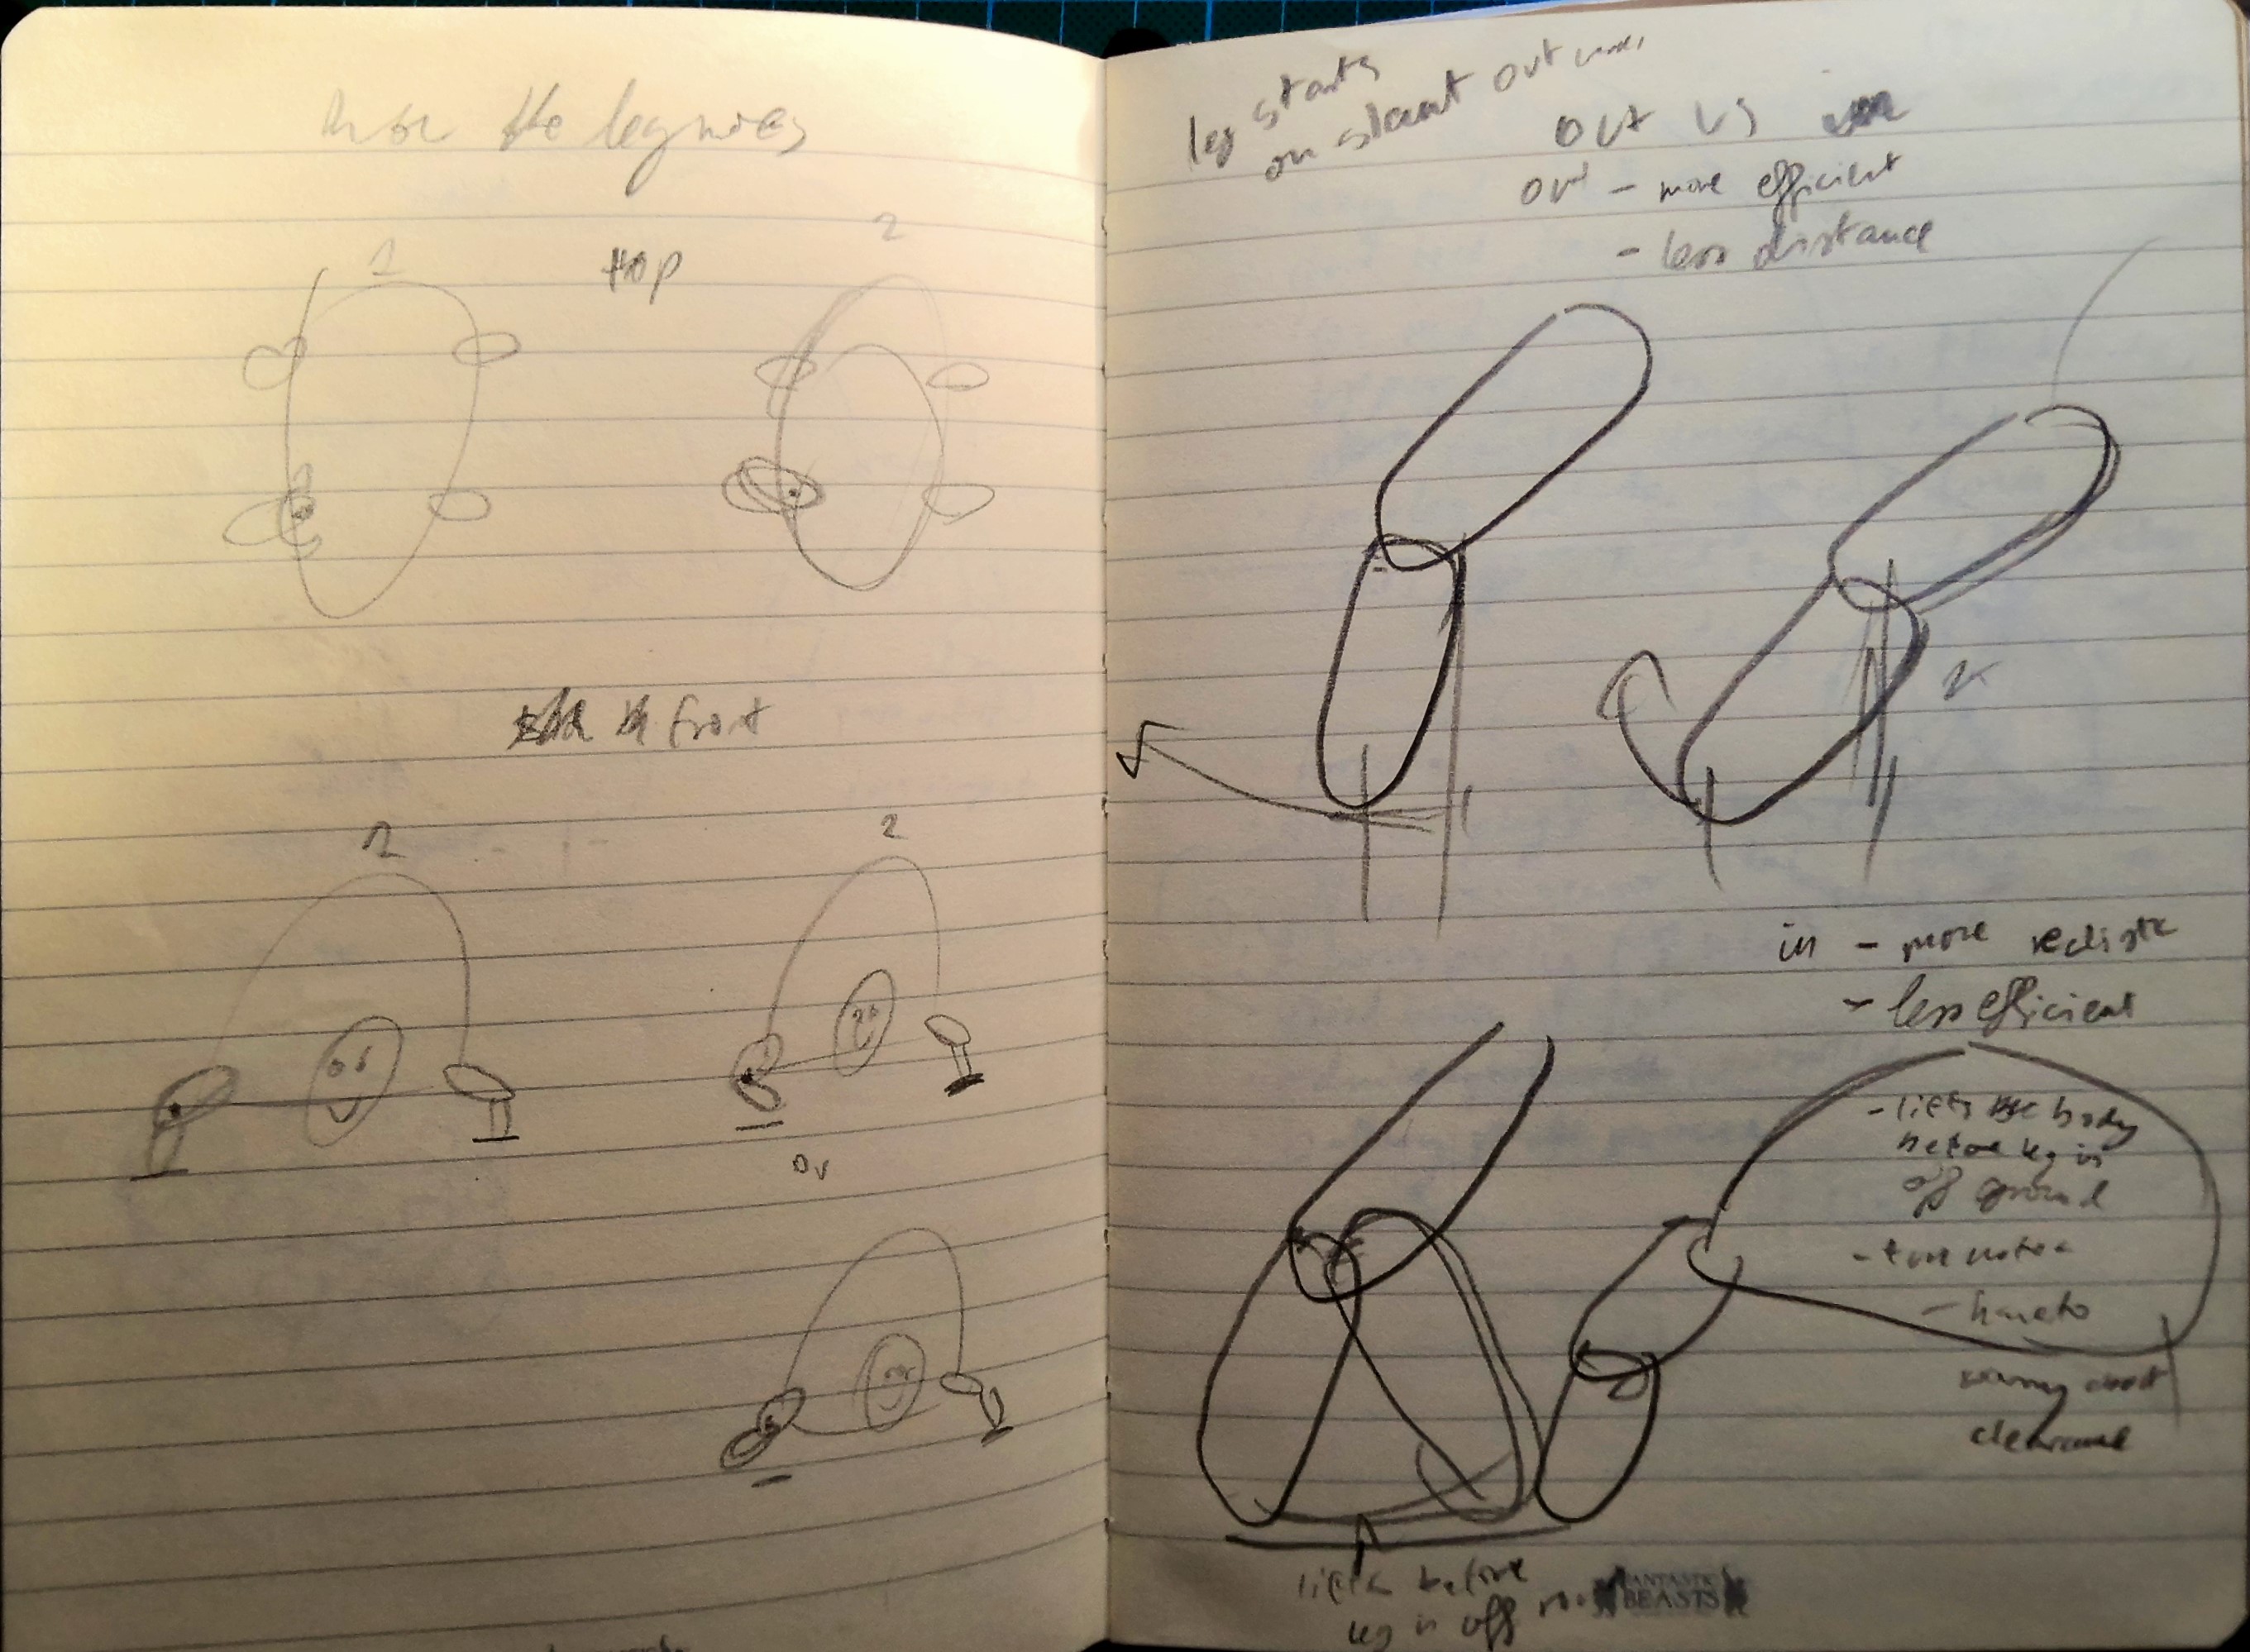 the leg moves
1
HOP
2
front
1
2
or
leg starts
on slant outwards
OUT vs
out - more efficient
- less distance
in - more realistic
- less efficient
- lifts the body
before leg is
off ground
- have to
worry about
clearance
lifts before
leg is off
FANTASTIC
BEASTS